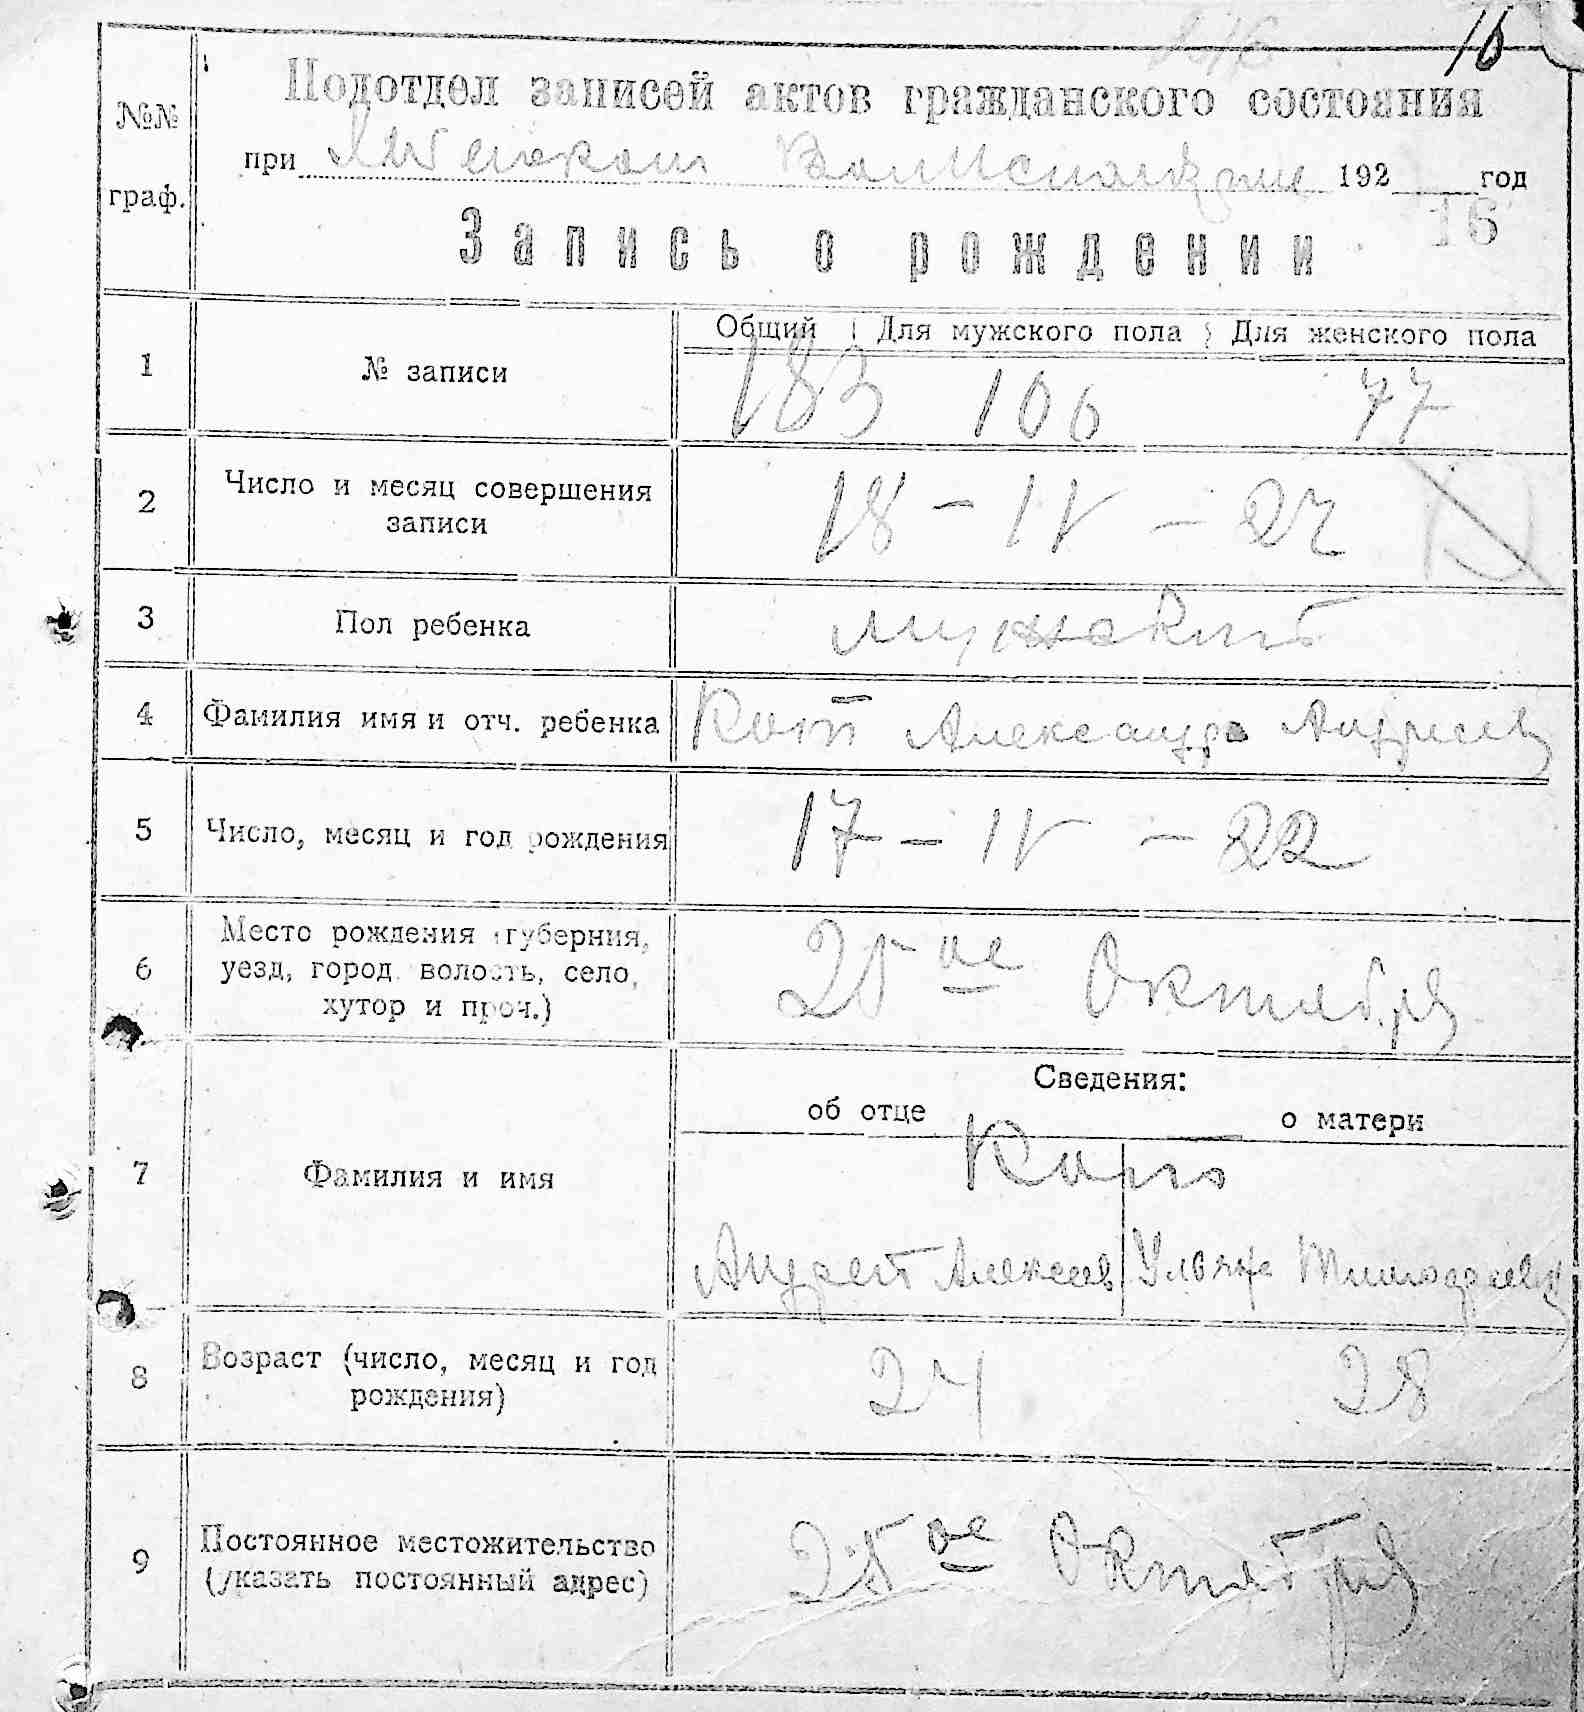 16
№№ граф.
Подотдел записей актов гражданского состояния
при 192 год
16
Запись о рождении
Общий Для мужского пола Для женского пола
1 № записи 183 106 77
2 Число и месяц совершения
записи
18 - IV - 22
3 Пол ребенка мужский
4 Фамилия имя и отч. ребенка Александр Андреев
5 Число, месяц и год рождения 17 - IV - 22
6 Место рождения (губерния,
уезд, город, волость, село,
хутор и проч.)
25 ое Октября
Сведения:
об отце о матери
7 Фамилия и имя
Андрей Алексеев Ульяна Тимофеевна
8 Возраст (число, месяц и год
рождения)
24 28
9 Постоянное местожительство
(указать постоянный адрес)
25 ое Октября